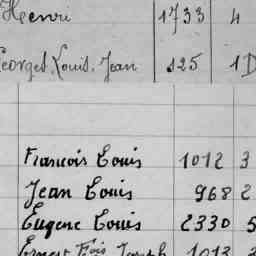 Henri 1733 4
Georges, Louis, Jean 125 1D
Francois Louis 1012 3
Jean Louis 968 2
Eugene Louis 2330 5
Ernest Fois Joseph 1013